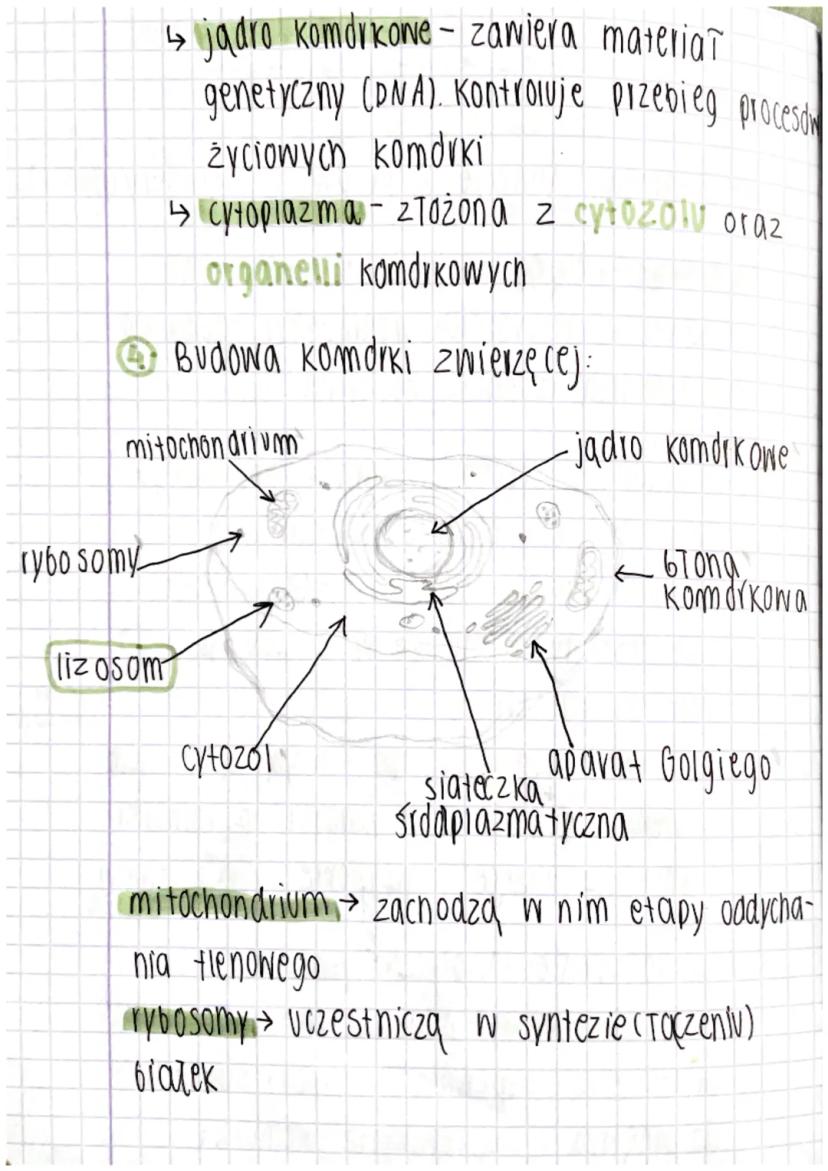 ↳ jądro komórkowe - zawiera materiał
genetyczny (DNA). Kontroluje przebieg procesów
życiowych komórki
↳ cytoplazma - złożona z cytozolu oraz
organelli komórkowych
④ Budowa komórki zwierzęcej:
mitochondrium
jądro komórkowe
rybosomy
błona
komórkowa
lizosom
cytozol
aparat Golgiego
siateczka
śródplazmatyczna
mitochondrium → zachodzą w nim etapy oddycha-
nia tlenowego
rybosomy → uczestniczą w syntezie (łączeniu)
białek